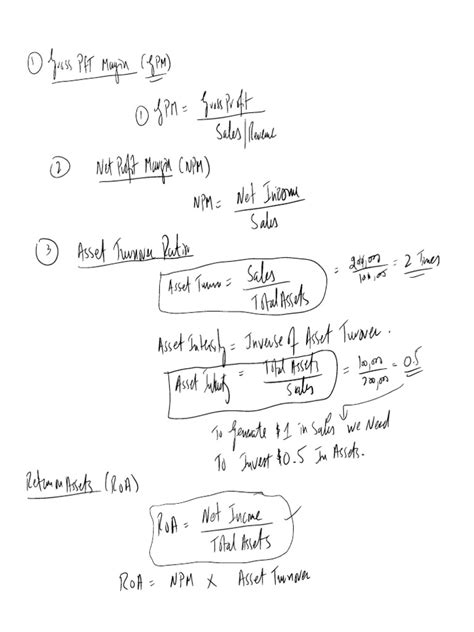 ① Gross Pft Margin (GPM)
① GPM = Gross Profit / Sales/Revenue
② Net Profit Margin (NPM)
NPM = Net Income / Sales
③ Asset Turnover Ratio
Asset Turno = Sales / Total Assets = 200,000 / 100,000 = 2 Times
Asset Intensity = Inverse of Asset Turover.
Asset Intensity = Total Assets / Sales = 100,000 / 200,000 = 0.5
To Generate $1 in Sales we Need
To Invest $0.5 In Assets.
Return on Assets (RoA)
RoA = Net Income / Total Assets
RoA = NPM X Asset Turnover